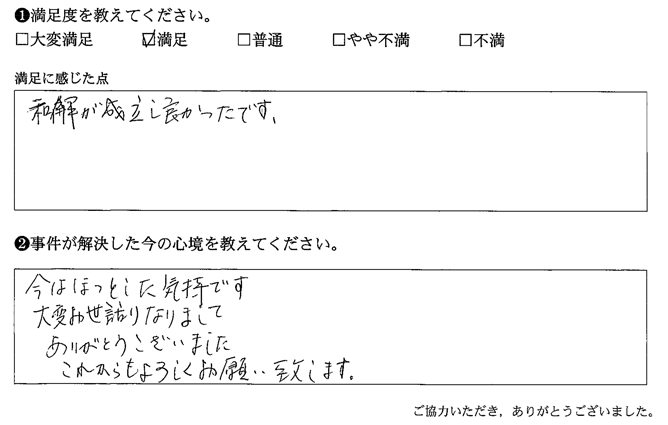 ❶満足度を教えてください。
□大変満足 ☑満足 □普通 □やや不満 □不満
満足に感じた点
和解が成立し良かったです。
❷事件が解決した今の心境を教えてください。
今はほっとした気持です
大変お世話りなりまして
ありがとうございました
これからもよろしくお願い致します。
ご協力いただき，ありがとうございました。